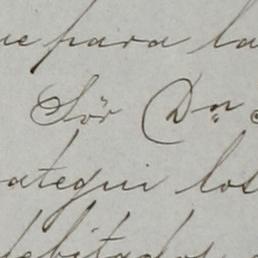 ue para la
Sör Dⁿ
ategui los
debitados